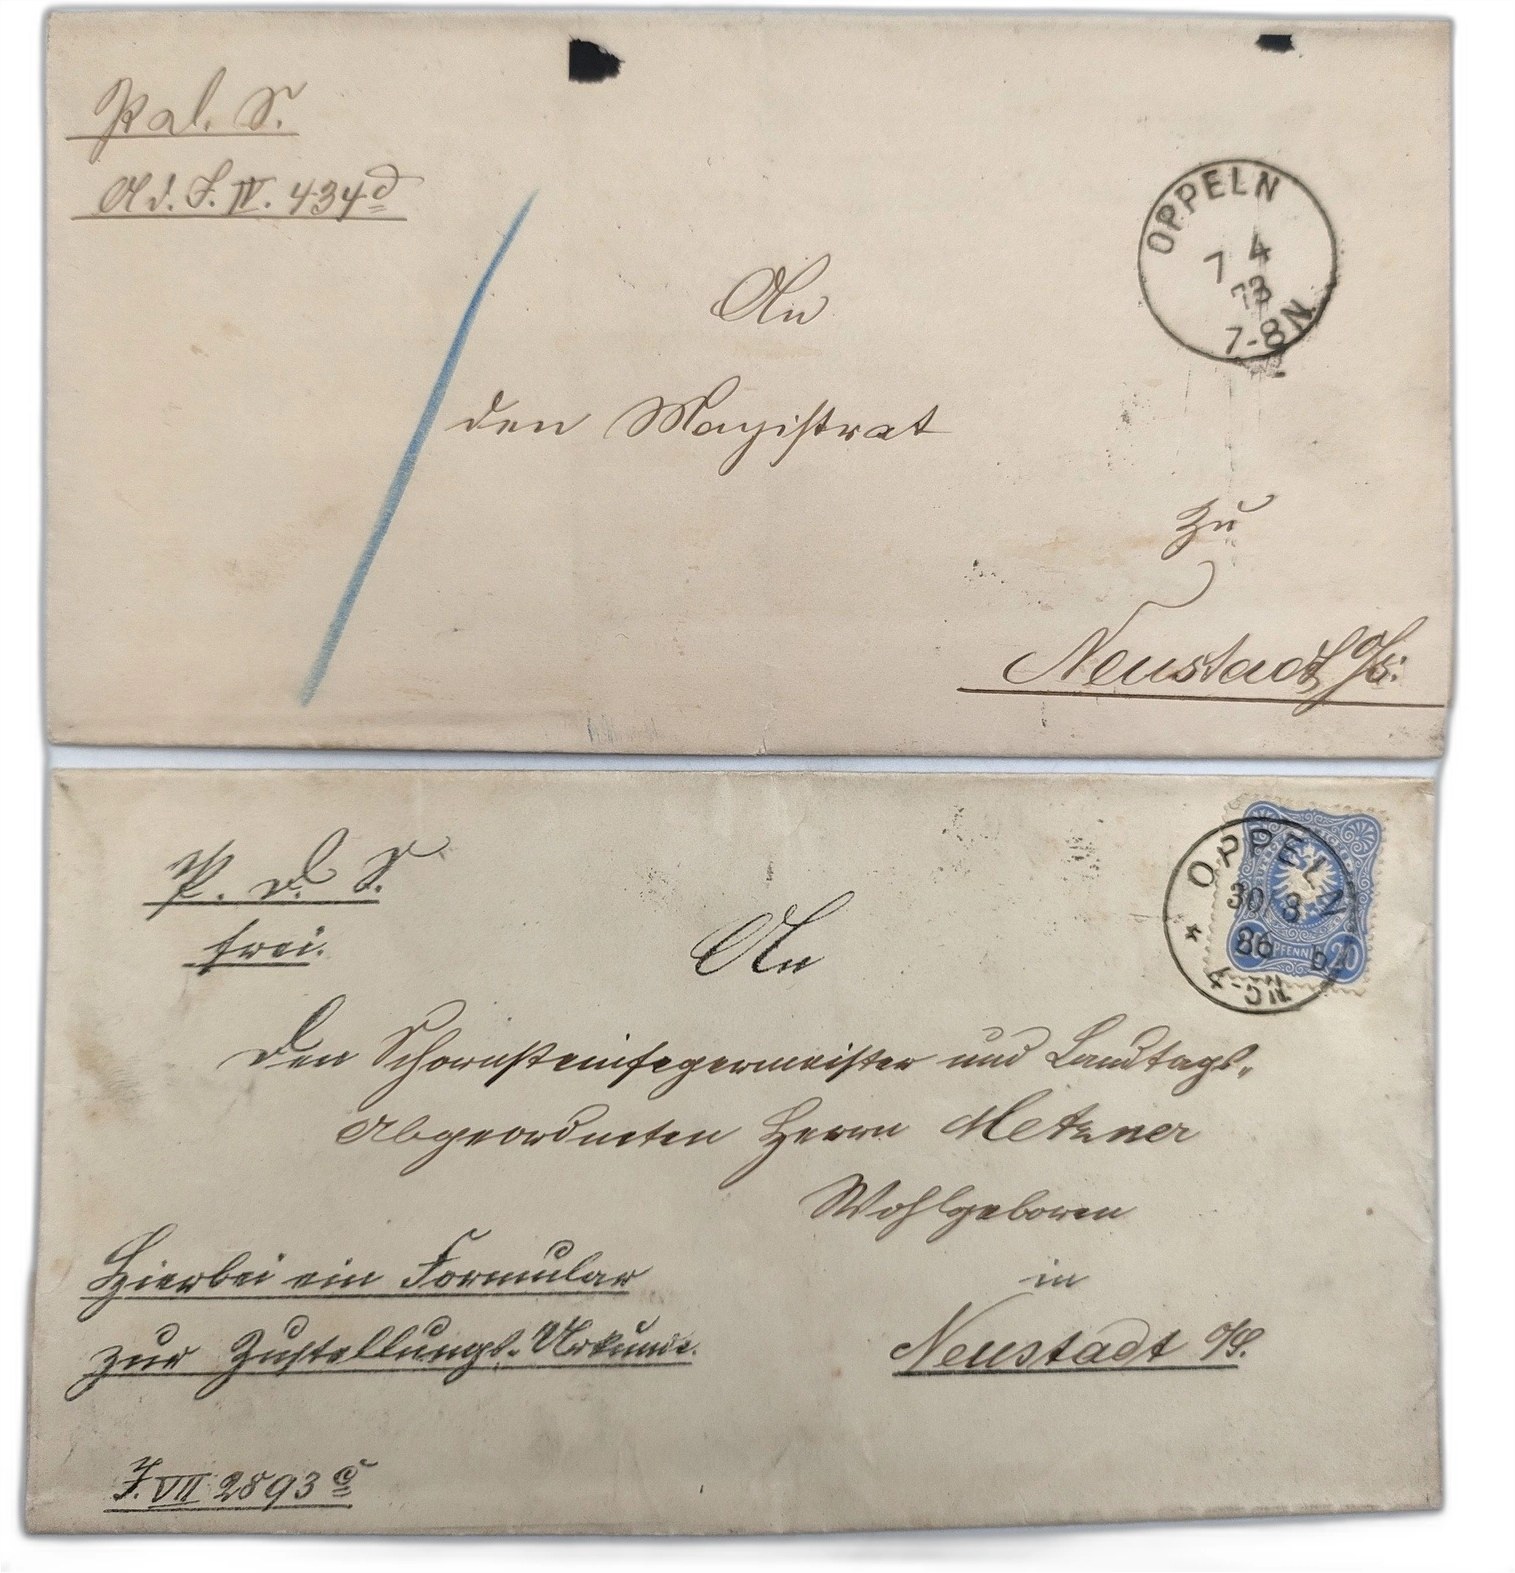 P. d. S.
Ad. J. IV. 434 d
OPPELN
7 4
73
7-8N
An
den Magistrat
zu
Neustadt O/S.
P. d. S.
frei.
OPPELN
30 8
86
20
PFENNIG
An
den Schornsteinfegermeister und Landtags-
Abgeordneten Herrn Metzner
Wohlgeboren
in
Neustadt O/S.
Hierbei ein Formular
zur Zustellungs-Urkunde.
J. VII 2893 c